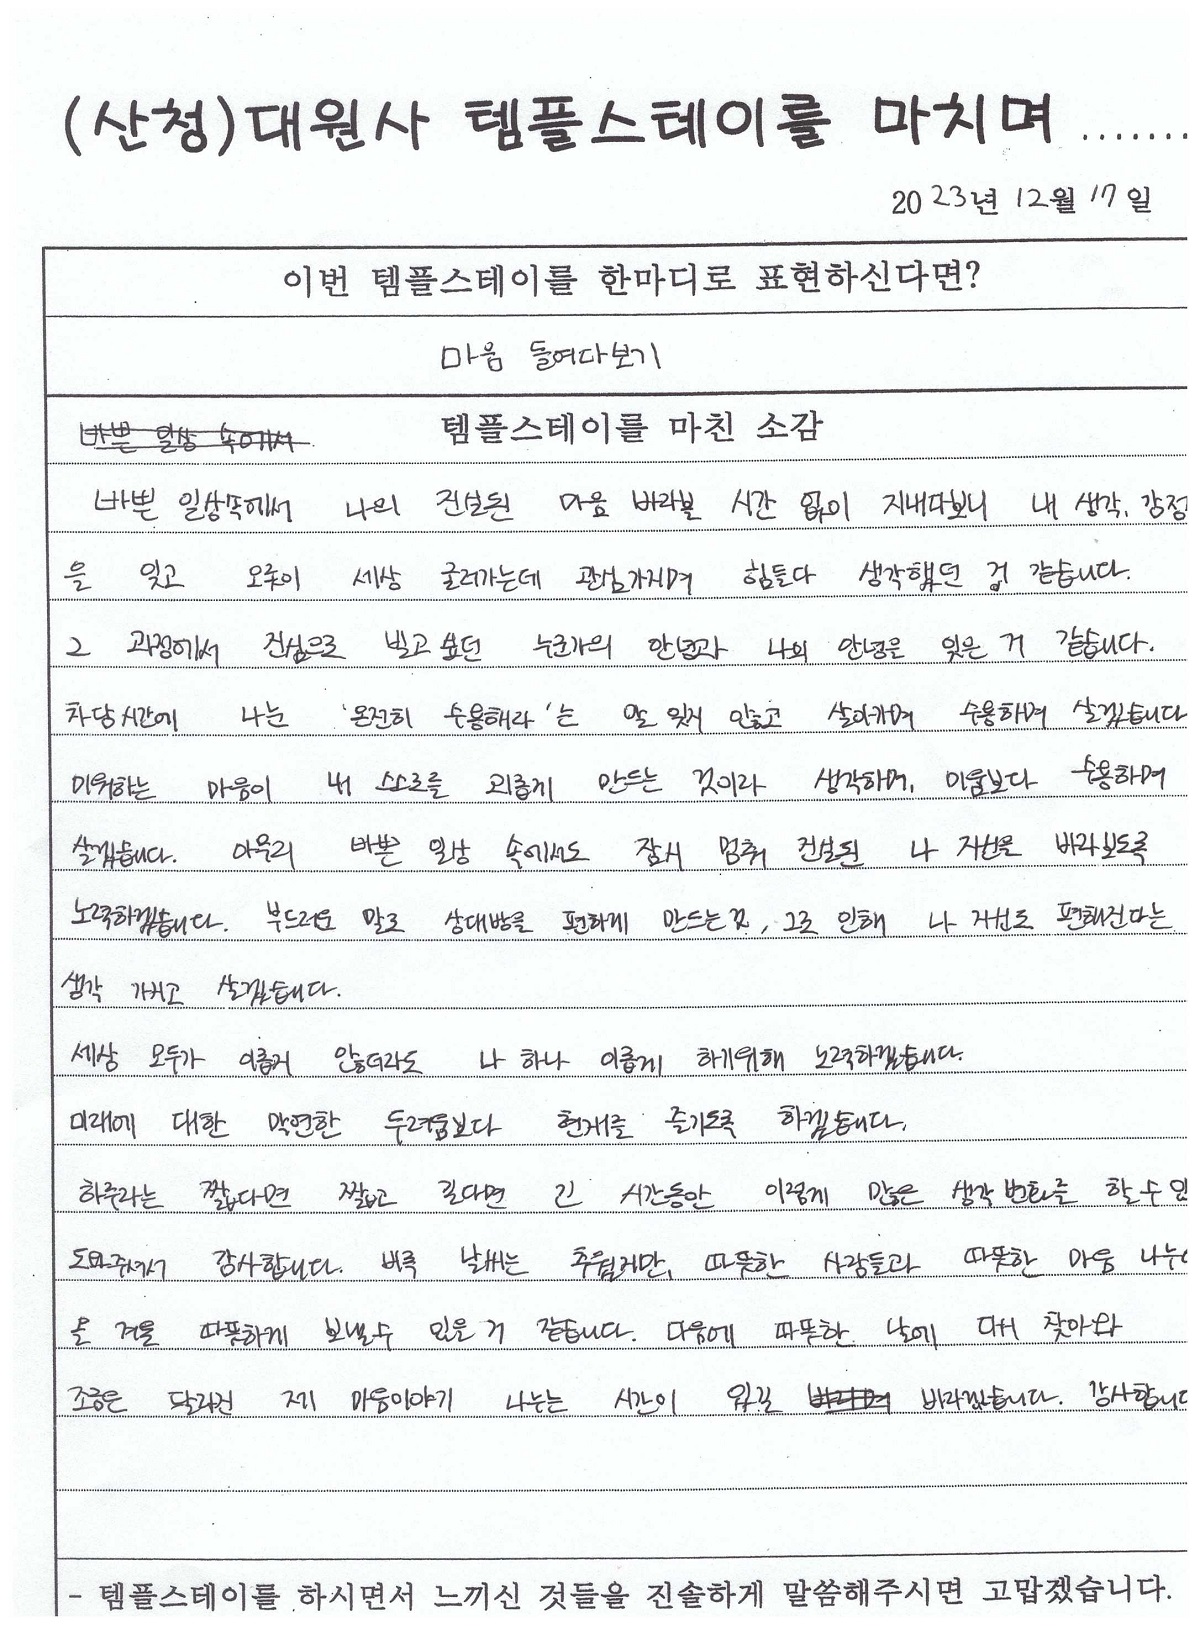 (산청)대원사 템플스테이를 마치며.......
2023년 12월 17일
이번 템플스테이를 한마디로 표현하신다면?
마음 들여다보기
바쁜 일상 속에서 템플스테이를 마친 소감
바쁜 일상속에서 나의 진실된 마음 바라볼 시간 없이 지내다보니 내 생각, 감정
을 잊고 오롯이 세상 굴러가는데 관심가지며 힘들다 생각했던 것 같습니다.
그 과정에서 진심으로 빌고 싶던 누군가의 안녕과 나의 안녕은 잊은 거 같습니다.
차담시간에 나눈 '온전히 수용해라'는 말 잊지 않고 살아가며 수용하며 살겠습니다
미워하는 마음이 내 스스로를 괴롭게 만드는 것이라 생각하며, 미움보다 수용하며
살겠습니다. 아무리 바쁜 일상 속에서도 잠시 멈춰 진실된 나 자신을 바라보도록
노력하겠습니다. 부드러운 말로 상대방을 편하게 만드는것, 그로 인해 나 자신도 편해진다는
생각 가지고 살겠습니다.
세상 모두가 이롭지 않더라도 나 하나 이롭게 하기위해 노력하겠습니다.
미래에 대한 막연한 두려움보다 현재를 즐기도록 하겠습니다.
하루라는 짧다면 짧고 길다면 긴 시간동안 이렇게 많은 생각 변화를 할수 있
도와주셔서 감사합니다. 비록 날씨는 추웠지만, 따뜻한 사람들과 따뜻한 마음 나누어
올 겨울 따뜻하게 보낼수 있을 거 같습니다. 다음에 따뜻한 날에 다시 찾아와
조금은 달라진 제 마음이야기 나누는 시간이 있길 바라며 바라겠습니다. 감사합니다
- 템플스테이를 하시면서 느끼신 것들을 진솔하게 말씀해주시면 고맙겠습니다.